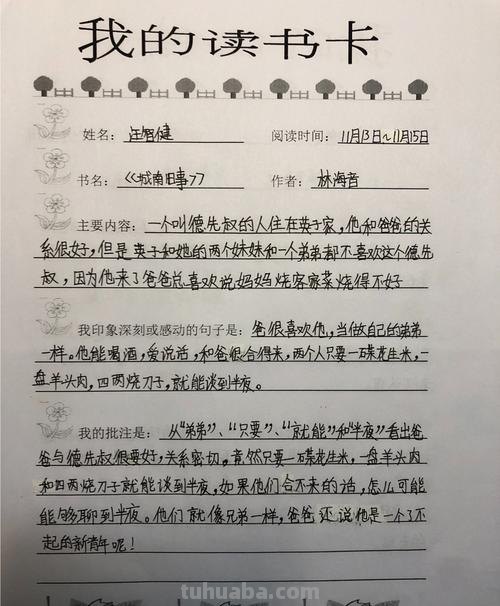 我的读书卡
姓名: 汪智健 阅读时间: 11月13日~11月15日
书名: 《城南旧事》 作者: 林海音
主要内容: 一个叫德先叔的人住在英子家,他和爸爸的关
系很好,但是英子和她的两个妹妹和一个弟弟都不喜欢这个德先
叔,因为他来了爸爸总喜欢说妈妈烧客家菜烧得不好
我印象深刻或感动的句子是: 爸很喜欢他,当做自己的弟弟
一样。他能喝酒,爱说话,和爸很合得来,两个人只要一碟花生米,一
盘羊头肉,四两烧刀子,就能谈到半夜。
我的批注是: 从“弟弟”、“只要”、“就能”和“半夜”看出爸
爸与德先叔很要好,关系密切。竟然只要一碟花生米,一盘羊头肉
和四两烧刀子就能谈到半夜,如果他们合不来的话,怎么可能
能够聊到半夜。他们就像兄弟一样,爸爸还说他是一个了不
起的新青年呢!
tuhuaba.com